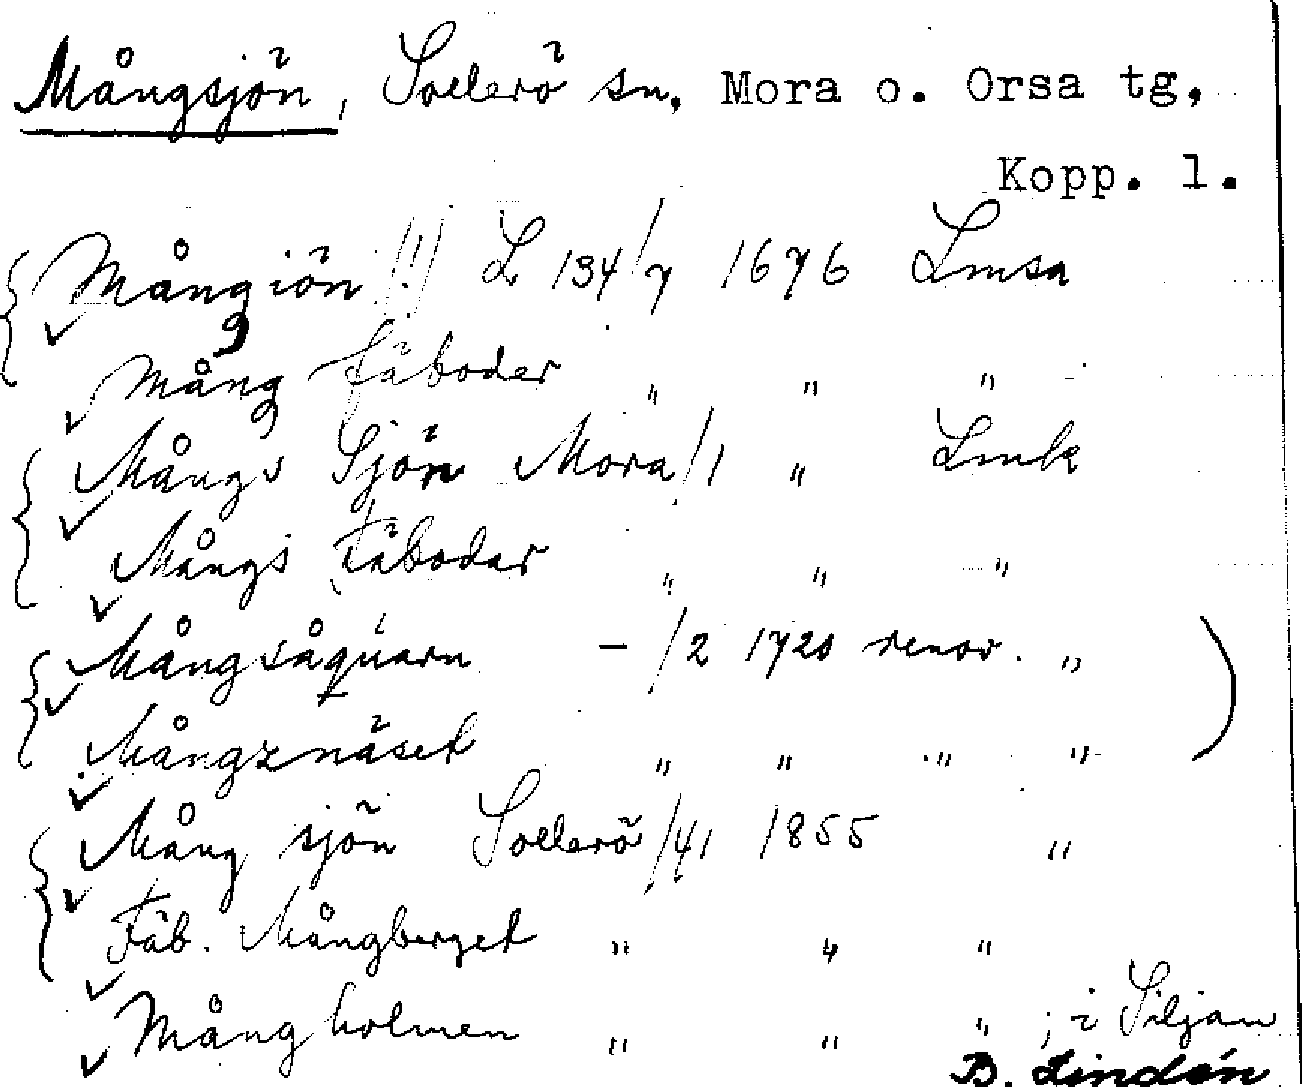 Mångsjön, Sollerö sn, Mora o. Orsa tg,
Kopp. l.
Mångiön (!) L 134/7 1676 Lmsa
Mång fäboder " " "
Mångs Sjön Mora/1 " Lmk
Mångs Fäboder " " "
Mångsåquarn - /2 1720 renov. "
Mångznäset " " " "
Mång sjön Sollerö/41 1855 "
Fäb. Mångberget " " "
Mångholmen " " " ; i Siljan
B. Lindén